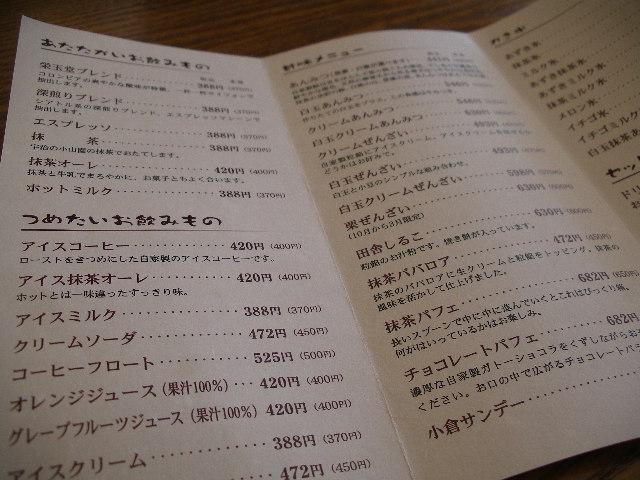 あたたかいお飲みもの
栄玉堂ブレンド 388円 (370円)
深煎りブレンド 388円 (370円)
エスプレッソ 388円 (370円)
抹茶 388円 (370円)
宇治の小山園の抹茶でおたてします。
抹茶オーレ 420円 (400円)
抹茶と牛乳でまろやかに、お菓子ともよく合います。
ホットミルク 388円 (370円)
つめたいお飲みもの
アイスコーヒー 420円 (400円)
ローストをきつめにした自家製のアイスコーヒーです。
アイス抹茶オーレ 420円 (400円)
ホットとは一味違ったすっきり味。
アイスミルク 388円 (370円)
クリームソーダ 472円 (450円)
コーヒーフロート 525円 (500円)
オレンジジュース (果汁100%) 420円 (400円)
グレープフルーツジュース (果汁100%) 420円 (400円)
アイスクリーム 388円 (370円)
472円 (450円)
甘味メニュー
あんみつ
白玉あんみつ 546円
クリームあんみつ
白玉クリームあんみつ 630円
クリームぜんざい
白玉ぜんざい 493円
白玉と小豆のシンプルな組み合わせ。
白玉クリームぜんざい 598円
栗ぜんざい 630円
(10月から3月限定)
田舎しるこ 630円
粒餡のお汁粉です。焼き餅が入っています。
抹茶ババロア 472円 (450円)
抹茶のババロアに生クリームと粒餡をトッピング。抹茶の
風味を活かして仕上げました。
抹茶パフェ 682円 (650円)
長いスプーンで中に中に進んでいくとこれはびっくり味。
何がはいっているかはお楽しみ。
チョコレートパフェ 682円
濃厚な自家製ガトーショコラをくずしながらお
ください。お口の中で広がるチョコレートパ
小倉サンデー
かき氷
あずき氷
抹茶氷
ミルク氷
あずき抹茶氷
あずきミルク氷
メロン氷
イチゴ氷
イチゴミルク
白玉抹茶あ
セッ